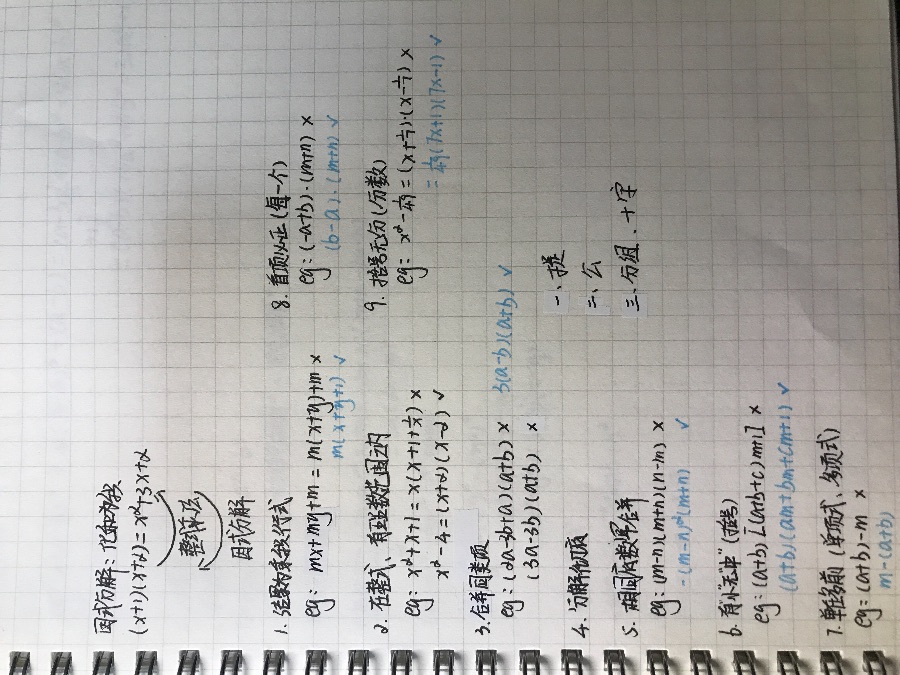 因式分解：化和为积
(x+1)(x+2)=x²+3x+2
整式乘法
因式分解
1. 结果为乘积形式
eg: mx+my+m=m(x+y)+m ×
m(x+y+1) √
2. 在整式、有理数范围内
eg: x²+x+1=x(x+1+1/x) ×
x²-4=(x+2)(x-2) √
3. 合并同类项
eg: (2a-3b+a)(a+b) ×
(3a-3b)(a+b) × 3(a-b)(a+b) √
4. 分解彻底
5. 相同因数要合并
eg: (m-n)(m+n)(n-m) ×
-(m-n)²(m+n) √
6. 有小无"中"(括号)
eg: (a+b)[(a+b+c)m+1] ×
(a+b)(am+bm+cm+1) √
7. 单在多前 (单项式、多项式)
eg: (a+b)-m ×
m-(a+b)
8. 首项必正 (每一个)
eg: (-a+b)·(m+n) ×
(b-a)·(m+n) √
9. 括号无分 (分数)
eg: x²-1/49=(x+1/7)·(x-1/7) ×
=1/49(7x+1)(7x-1) √
一、提
二、公
三、分组、十字